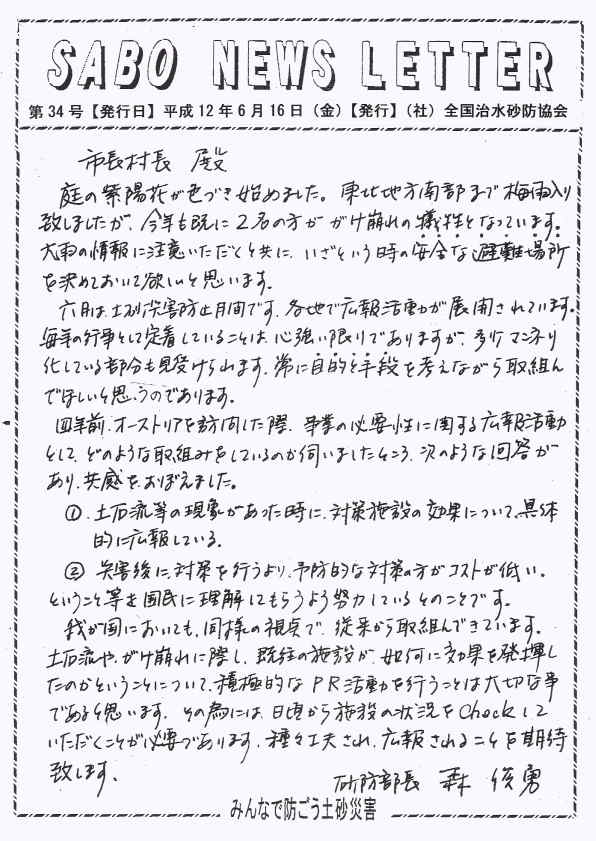 SABO NEWS LETTER
第34号【発行日】平成12年6月16日（金）【発行】（社）全国治水砂防協会
市長村長 殿
庭の紫陽花が色づき始めました。東北地方南部まで梅雨入り
致しましたが、今年も既に2名の方ががけ崩れの犠牲となっています。
大雨の情報に注意いただくと共に、いざという時の安全な避難場所
を決めておいて欲しいと思います。
六月は、土砂災害防止月間です。各地で広報活動が展開されています。
毎年の行事として定着していることは、心強い限りでありますが、多少マンネリ
化している部分も見受けられます。常に目的と手段を考えながら取組ん
でほしいと思うのであります。
四年前、オーストリアを訪問した際、事業の必要性に関する広報活動
として、どのような取組みをしているのか伺いましたところ、次のような回答が
あり、共感をおぼえました。
①．土石流等の現象があった時に、対策施設の効果について、具体
的に広報している。
② 災害後に対策を行うより、予防的な対策の方がコストが低い。
ということ等を国民に理解してもらうよう努力しているとのことです。
我が国においても、同様の視点で、従来から取組んできています。
土石流や、がけ崩れに際し、既往の施設が、如何に効果を発揮し
たのかということについて、積極的なPR活動を行うことは大切な事
であると思います。その為には、日頃から施設の状況をCheckして
いただくことが必要であります。種々工夫され、広報されることを期待
致します。
砂防部長 森 俊勇
みんなで防ごう土砂災害